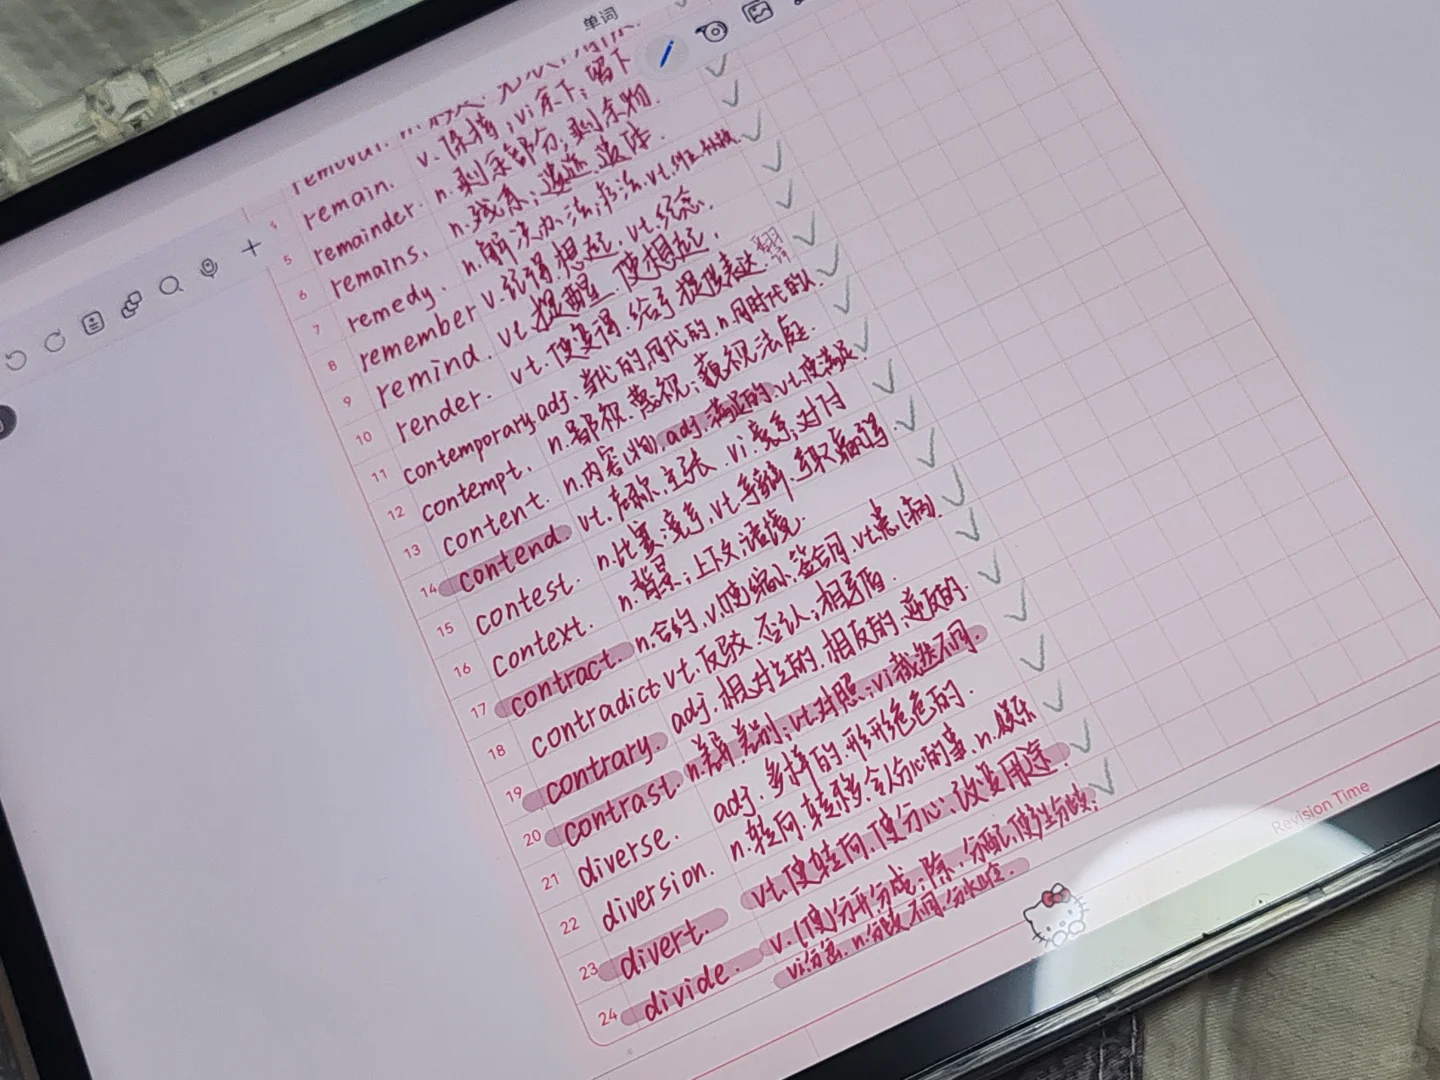 单词
removal.
remain. v.保持;vi余下;留下
5 remainder. n.剩余部分,剩余物.
6 remains. n.残余;遗迹.遗体.
7 remedy. n.解决办法;疗法.vt.纠正
8 remember v.记得.想起.vt.纪念.
9 remind. vt.提醒.使想起.
10 render. vt.使变得.给予.提供.表达.
11 contemporary adj.当代的,同代的.n.同时代的人.
12 contempt. n.鄙视.蔑视;藐视法庭.
13 content. n.内容物.adj.满足的.vt.使满足.
14 contend. vt.声称,主张.vi竞争;对付
15 contest. n.比赛;竞争,vt.争辩.争取赢得.
16 context. n.背景;上下文;语境.
17 contract. n.合约,v.使缩小;签合同.vt.患(病).
18 contradict vt.反驳.否认;相矛盾.
19 contrary. adj.相对立的.相反的;逆反的.
20 contrast. n.差异差别;vt.对照;vi截然不同.
21 diverse. adj.多样的.形形色色的.
22 diversion. n.转向.转移.令人分心的事.n.娱乐
23 divert. vt.使转向.使分心;改变用途.
24 divide. v.(使)分开.分成;除,分配,使产生分歧;
vi.分裂.n.分歧.不同.分水岭.
Revision Time